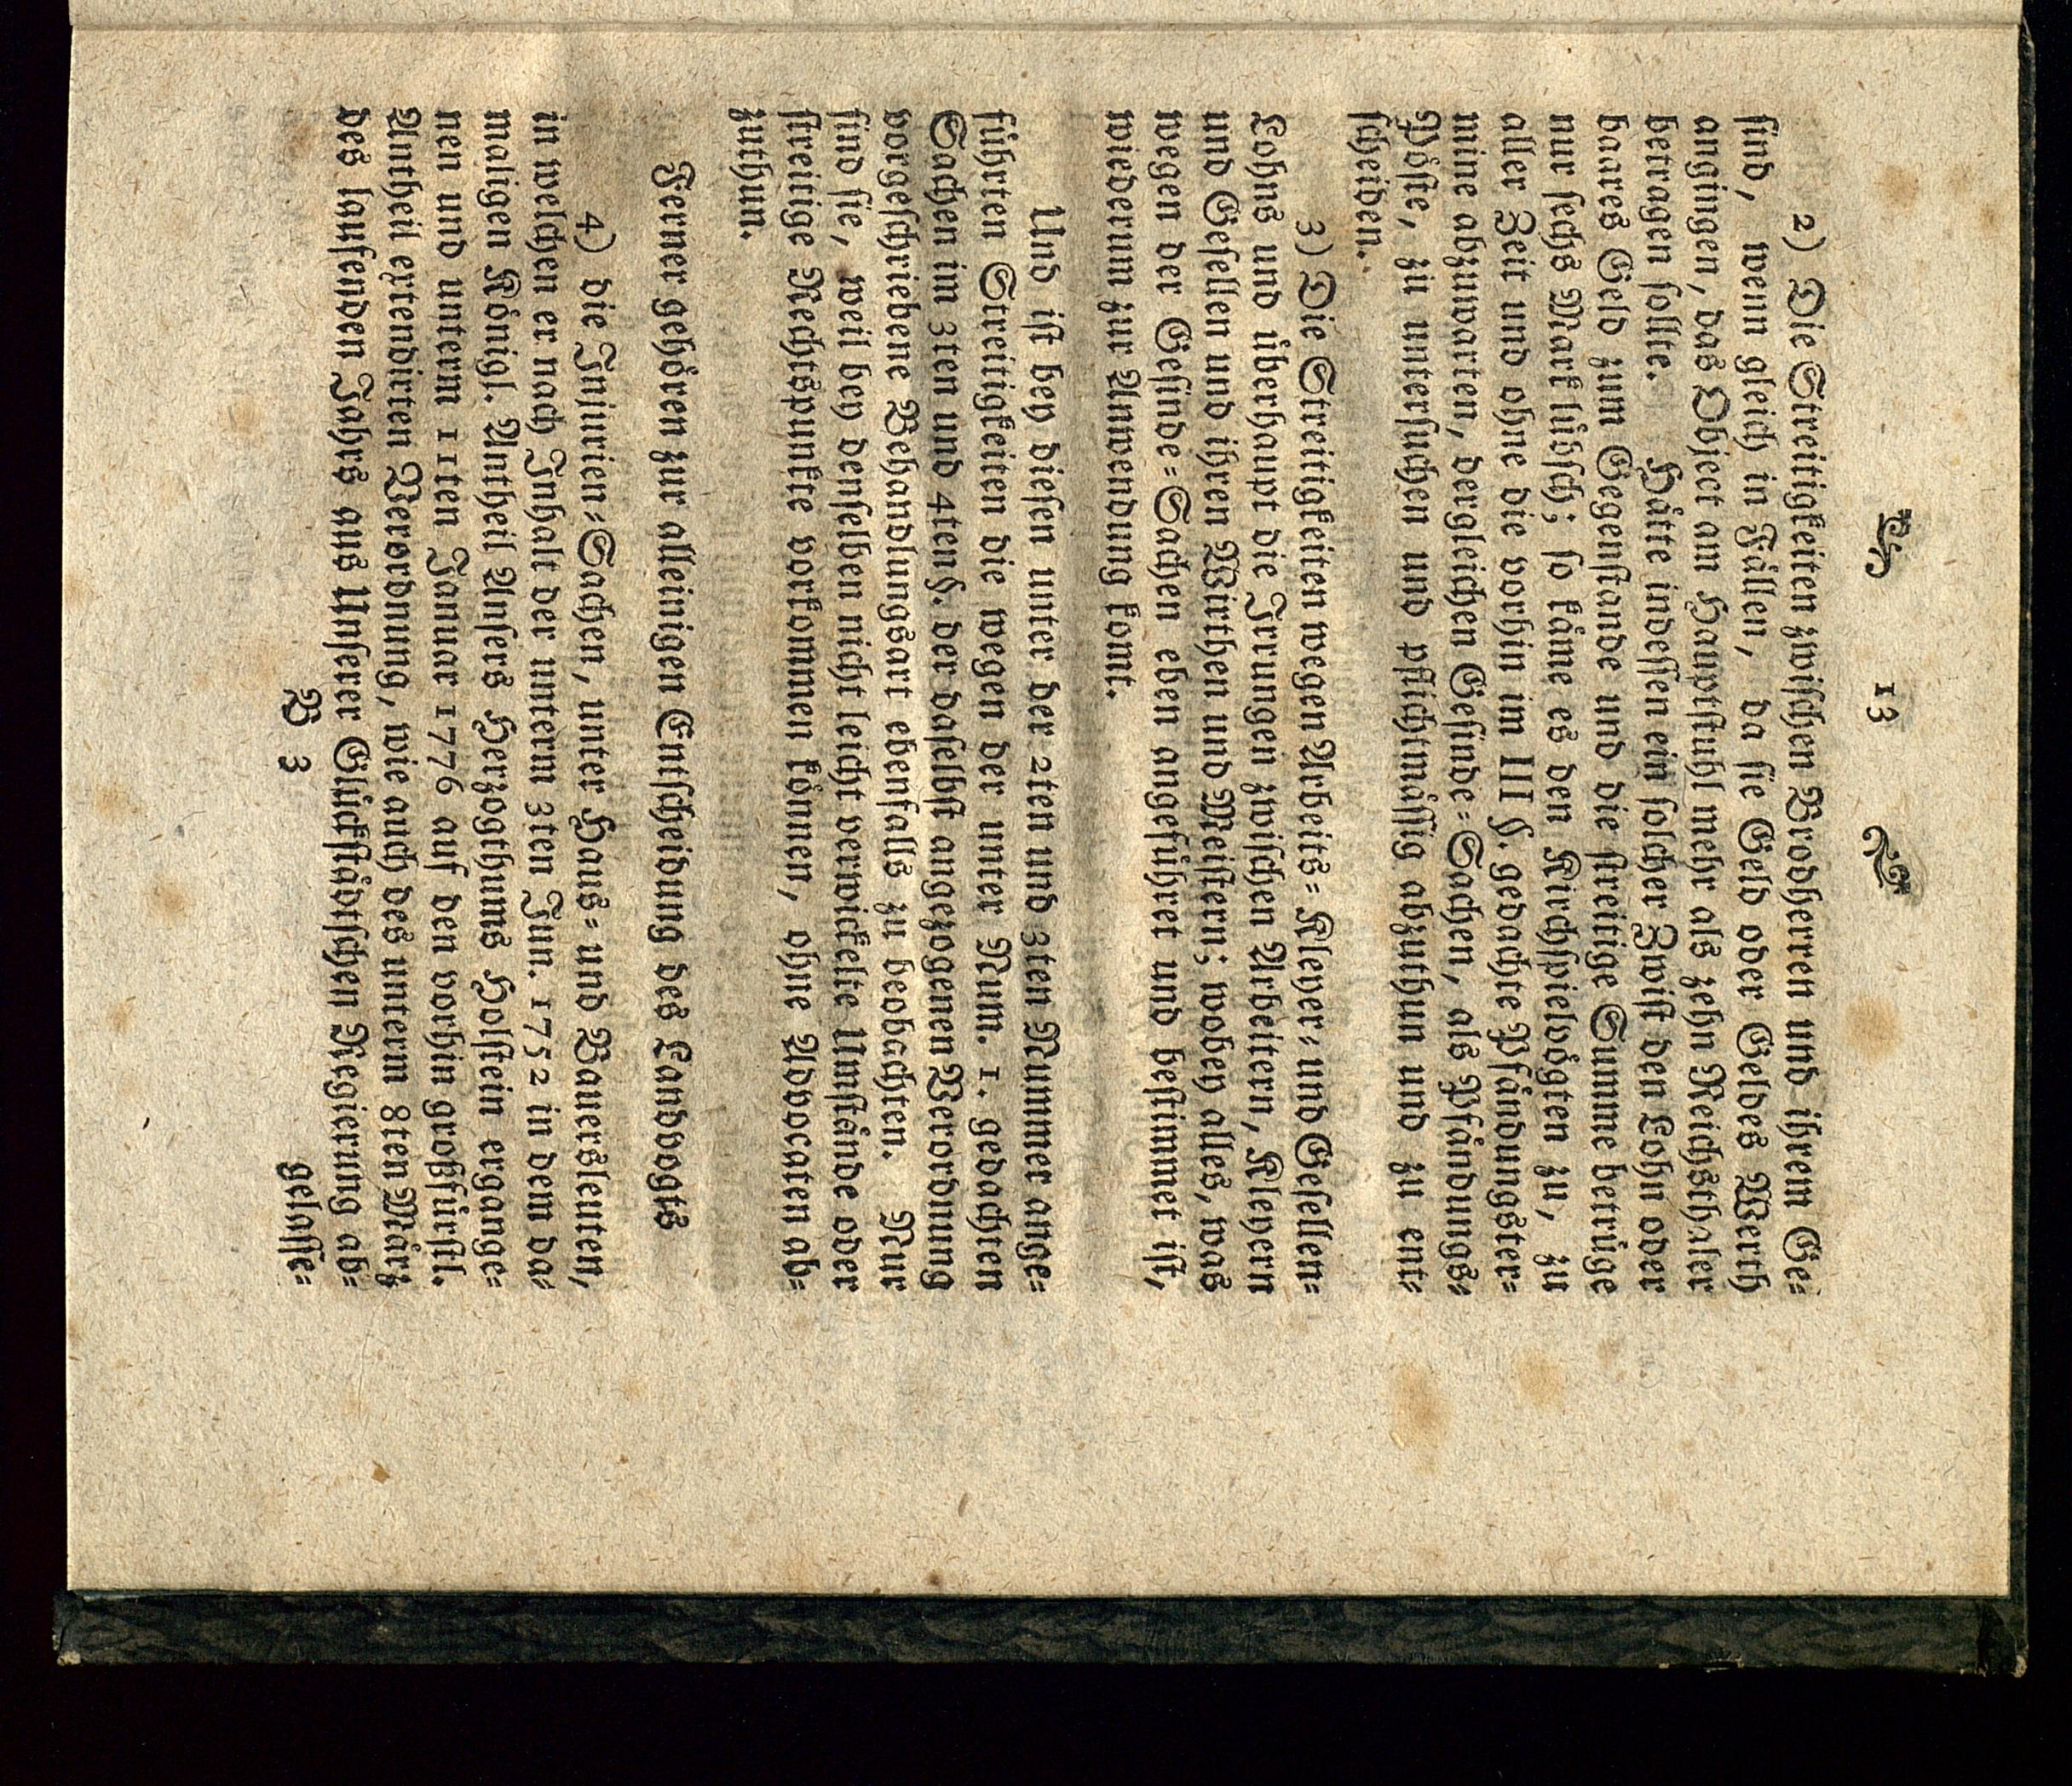 13
2) Die Streitigkeiten zwischen Brodherren und ihrem Ge=
sind, wenn gleich in Fällen, da sie Geld oder Geldes Werth
angingen, das Object am Hauptstuhl mehr als zehn Reichsthaler
betragen sollte. Hätte indessen ein solcher Zwist den Lohn oder
baares Geld zum Gegenstande und die streitige Summe betrüge
nur sechs Mark lübsch; so käme es den Kirchspielvögten zu, zu
aller Zeit und ohne die vorhin im III §. gedachte Pfändungster=
mine abzuwarten, dergleichen Gesinde=Sachen, als Pfändungs=
Pöste, zu untersuchen und pflichtmässig abzuthun und zu ent=
scheiden.
3) Die Streitigkeiten wegen Arbeits= Kleyer= und Gesellen=
Lohns und überhaupt die Irrungen zwischen Arbeitern, Kleyern
und Gesellen und ihren Wirthen und Meistern; wobey alles, was
wegen der Gesinde=Sachen eben angeführet und bestimmet ist,
wiederum zur Anwendung komt.
Und ist bey diesen unter der 2ten und 3ten Nummer ange=
führten Streitigkeiten die wegen der unter Num. 1. gedachten
Sachen im 3ten und 4ten §. der daselbst angezogenen Verordnung
vorgeschriebene Behandlungsart ebenfalls zu beobachten. Nur
sind sie, weil bey denselben nicht leicht verwickelte Umstände oder
streitige Rechtspunkte vorkommen können, ohne Advocaten ab=
zuthun.
Ferner gehören zur alleinigen Entscheidung des Landvogts
4) die Injurien=Sachen, unter Haus= und Bauersleuten,
in welchen er nach Inhalt der unterm 3ten Jun. 1752 in dem da=
maligen Königl. Antheil Unsers Herzogthums Holstein ergange=
nen und unterm 11ten Januar 1776 auf den vorhin großfürstl.
Antheil extendirten Verordnung, wie auch des unterm 8ten März
des laufenden Jahrs aus Unserer Glückstädtschen Regierung ab=
B 3
gelasse=